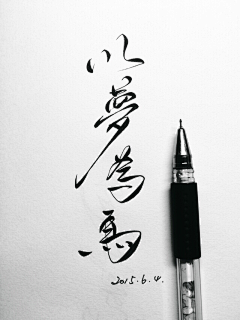 以夢為馬
2015.6.4.